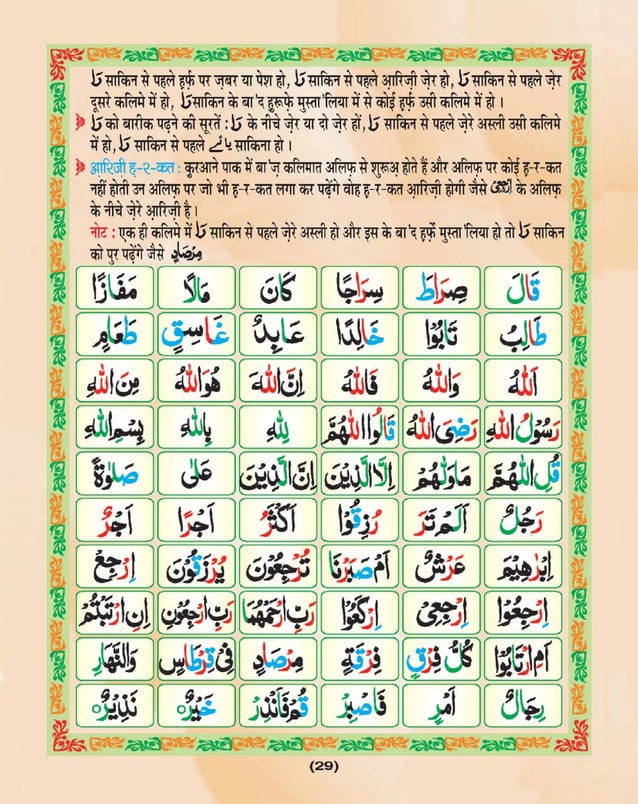 رَا साकिन से पहले ह़र्फ़ पर ज़बर या पेश हो, رَا साकिन से पहले आ़रिज़ी ज़ेर हो, رَا साकिन से पहले ज़ेर
दूसरे कलिमे में हो, رَا साकिन के बा'द हु़रूफ़े मुस्ता'लिया में से कोई ह़र्फ़ उसी कलिमे में हो ।
رَا को बारीक पढ़ने की सूरतें : رَا के नीचे ज़ेर या दो ज़ेर हों, رَا साकिन से पहले ज़ेरे अस्ली उसी कलिमे
में हो, رَا साकिन से पहले يائے साकिना हो ।
आ़रिज़ी ह़-र-कत : क़ुरआने पाक में बा'ज़ कलिमात अलिफ़ से शुरूअ़ होते हैं और अलिफ़ पर कोई ह़-र-कत
नहीं होती उन अलिफ़ पर जो भी ह़-र-कत लगा कर पढ़ेंगे वोह ह़-र-कत आ़रिज़ी होगी जैसे के अलिफ़
के नीचे ज़ेरे आ़रिज़ी है ।
नोट : एक ही कलिमे में رَا साकिन से पहले ज़ेरे अस्ली हो और इस के बा'द ह़र्फ़े मुस्ता'लिया हो तो رَا साकिन
को पुर पढ़ेंगे जैसे مِرْصَادٍ
قَالَ صِرَاطَ سِرَاجًا كَانَ مَالًا مَفَازًا
طَالِبُ تَابُوْا خَالِدًا عَابِدٌ غَاسِقٍ طَعَامٍ
اَللهُ وَاللهُ فَاللهُ اِنَّ اللهَ هُوَ اللهُ مِنَ اللهِ
رَسُوْلُ اللهِ رَضِيَ اللهُ قَالُوا اللّٰهُمَّ لِلّٰهِ بِاللهِ بِسْمِ اللهِ
قُلِ اللّٰهُمَّ مَاوَلّٰهُمْ اِلَّا الَّذِيْنَ اِنَّ الَّذِيْنَ عَلٰى صَلٰوةً
رَجُلٌ اَلَمْ تَرَ رُزِقُوْا اَكْثَرُ اَجْرًا اَجْرٌ
اِبْرٰهِيْمَ عَرْشٌ اَمْ صَبَرْنَا تُرْجَعُوْنَ يُرْزَقُوْنَ اِرْجِعْ
اِرْجِعُوْا اِرْجِعِىْ اِرْكَعُوْا رَبِّ ارْحَمْهُمَا رَبِّ ارْجِعُوْنِ اِنِ ارْتَبْتُمْ
اَمِ ارْتَابُوْا كُلُّ فِرْقٍ فِرْقَةٍ مِرْصَادٍ فِىْ قِرْطَاسٍ وَالنَّهَارِ
رِجَالٌ اَمْرٍ فَاصْبِرْ قُمْ فَاَنْذِرْ خَيْرٌ نَذِيْرٌ
(29)